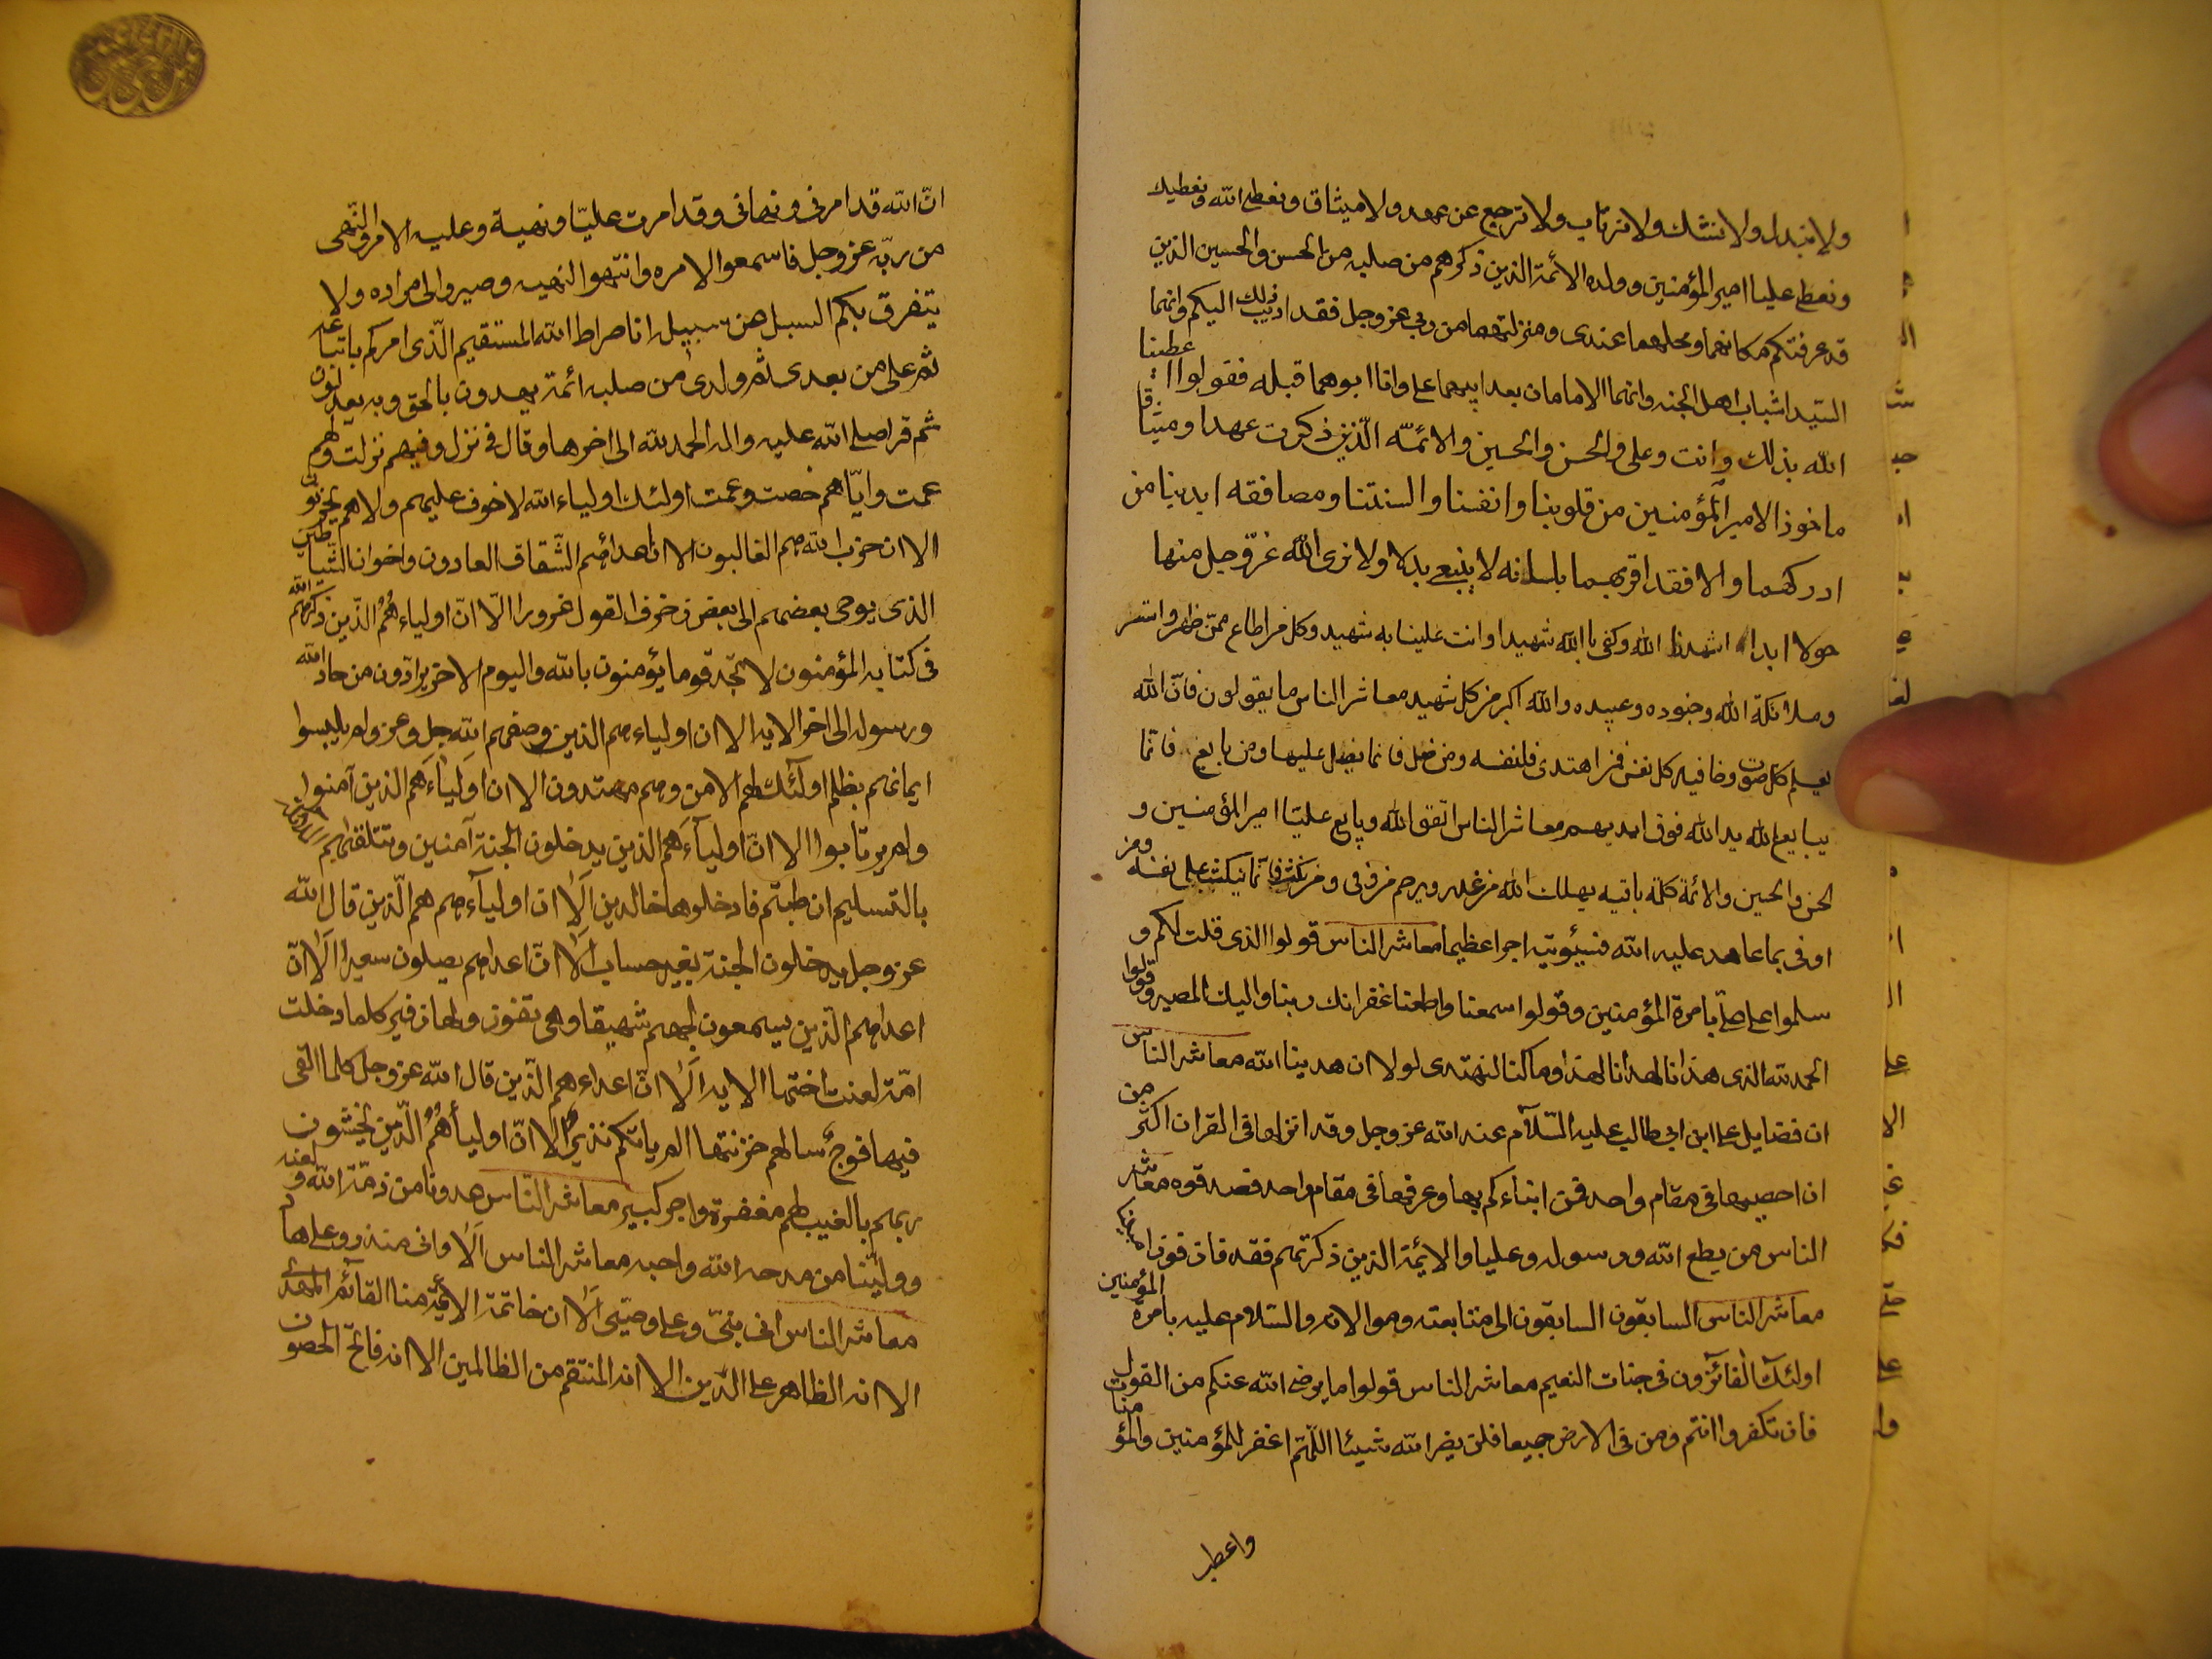 ولا نبدل ولا نشك ولا نرتاب ولا نرجع عن عهد ولا ميثاق ونعطى الله ونعطيك
ونعطى عليا امير المؤمنين وولده الأئمة الذين ذكرهم من صلبه من الحسن والحسين الذين
قد عرفتكم مكانهما ومحلهما عندى ومنزلتهما من ربى عز وجل فقد اديت ذلك اليكم وانهما
السيدا شباب اهل الجنه وانهما الامامان بعد ابيهما على وانا ابوهما قبله فقولوا اعطينا
الله بذلك وانت وعلى والحسن والحسين والائمّه الّذين ذكرت عهدا وميثاقا
ماخوذ الامير المؤمنين من قلوبنا وانفسنا والسنتنا ومصافقه ايدينا من
ادركهما والا فقد اقر بهما بلسانه لا ينبغى بدلا ولا نرى الله عزّ وجل منها
حولا ابدا اشهدنا الله وكفى بالله شهيدا وانت علينا به شهيد وكل من اطاع ممن ظهر واستتر
وملائكة الله وجنوده وعبيده والله اكبر من كل شهيد معاشر الناس ما يقولون فانّ الله
يعلم كل صوت وخافيه كل نفس فمن اهتدى فلنفسه ومن ضل فانما يضل عليها ومن بايع فانما
يبايع الله يد الله فوق ايديهم معاشر الناس اتقوا الله وبايع عليّا امير المؤمنين و
الحسن والحسين والائمة كلمة باقيه يهلك الله من غدر ويرحم من وفى ومن نكث فانما ينكث على نفسه ومن
اوفى بما عاهد عليه الله فسيؤتيه اجرا عظيما معاشر الناس قولوا الذى قلت لكم و
سلموا على علىّ بامرة المؤمنين وقولوا سمعنا واطعنا غفرانك ربنا واليك المصير وقولوا
الحمد لله الذى هدانا لهذا وما كنا لنهتدى لولا ان هدينا الله معاشر الناس
ان فضايل على ابن ابى طالب عليه السّلآم عند الله عز وجل وقد انزلها فى القران اكثر من
ان احصيها فى مقام واحد فمن ابناءكم بها وعرفها فى مقام واحد فصدقوه معاشر
الناس من يطع الله ورسوله وعليا والايمّة الذين ذكرتهم فقد فاز فوزا
معاشر الناس السابقون السابقون الى متابعته وموالاته والسّلام عليه بامرة المؤمنين
اولئك الفائزون فى جنات النعيم معاشر الناس قولوا ما يرضى الله عنكم من القول
فان تكفروا انتم ومن فى الارض جميعا فلن يضر الله شيئا اللّهّم اغفر للمؤمنين والمؤمنات
واعطب
انّ الله قد امرنى ونهانى وقد امرت عليّا ونهية وعليه الامر والنّهى
من ربّه عز وجل فاسمعوا لامره وانتهوا النهيه وصيروا الى مراده ولا
يتفرق بكم السبل عن سبيل انا صراط الله المستقيم الّذى امركم باتباعه
ثم على من بعدى ثم ولدى من صلبه ائمة يهدون بالحق وبه يعدلون
ثم قرا صلى الله عليه واله الحمد لله الى اخرها وقال فى نزل وفيهم نزلت ولهم
عمت وايّاهم خصت وعمت اولئك اولياء الله لا خوف عليهم ولا هم يحزنون
الا ان حزب الله هم الغالبون الا ان اعدائهم الشّقاق العادون واخوان الشّياطين
الذى يوحى بعضهم الى بعض زخرف القول غرورا الّا انّ اولياءهم الّذين ذكرهم الله
فى كتابه المؤمنون لا تجد قوما يؤمنون بالله واليوم الاخر يوادّون من حاد الله
ورسوله الى اخر الايه الا ان اولياءهم الذين وصفهم الله جل وعز ولم يلبسوا
ايمانهم بظلم اولئك لهم الامن وهم مهتدون الا ان اوليآءهم الذين آمنوا
ولم يرتابوا الا انّ اوليآءهم الذين يدخلون الجنة آمنين وتتلقهم الملائكة
بالتسليم ان طبتم فادخلوها خالدين الا ان اوليآءهم هم الّذين قال الله
عز وجل يدخلون الجنة بغير حساب الا انّ اعداهم يصلون سعيرا الا انّ
اعداهم الّذين يسمعون لجهنم شهيقا وهى تفور ولها زفير كلما دخلت
امّة لعنت اختها الايه الا انّ اعداءهم الّذين قال الله عز وجل كلما القى
فيها فوج سالهم خزنتها الم ياتكم نذير الا انّ اوليأهم الّذين يخشون
ربهم بالغيب لهم مغفرة واجر كبير معاشر النّاس عدونا من ذمّه الله ولعنه
وولّينا من مدحه الله واحبه معاشر الناس الا وانى منذر وعلى هاد
معاشر الناس انى نبىّ وعلى وصيّى الا ان خاتمة الايمّة منا القائم المهدى
الا انه الظاهر على الدّين الا انه المنتقم من الظالمين الا انه فاتح الحصون